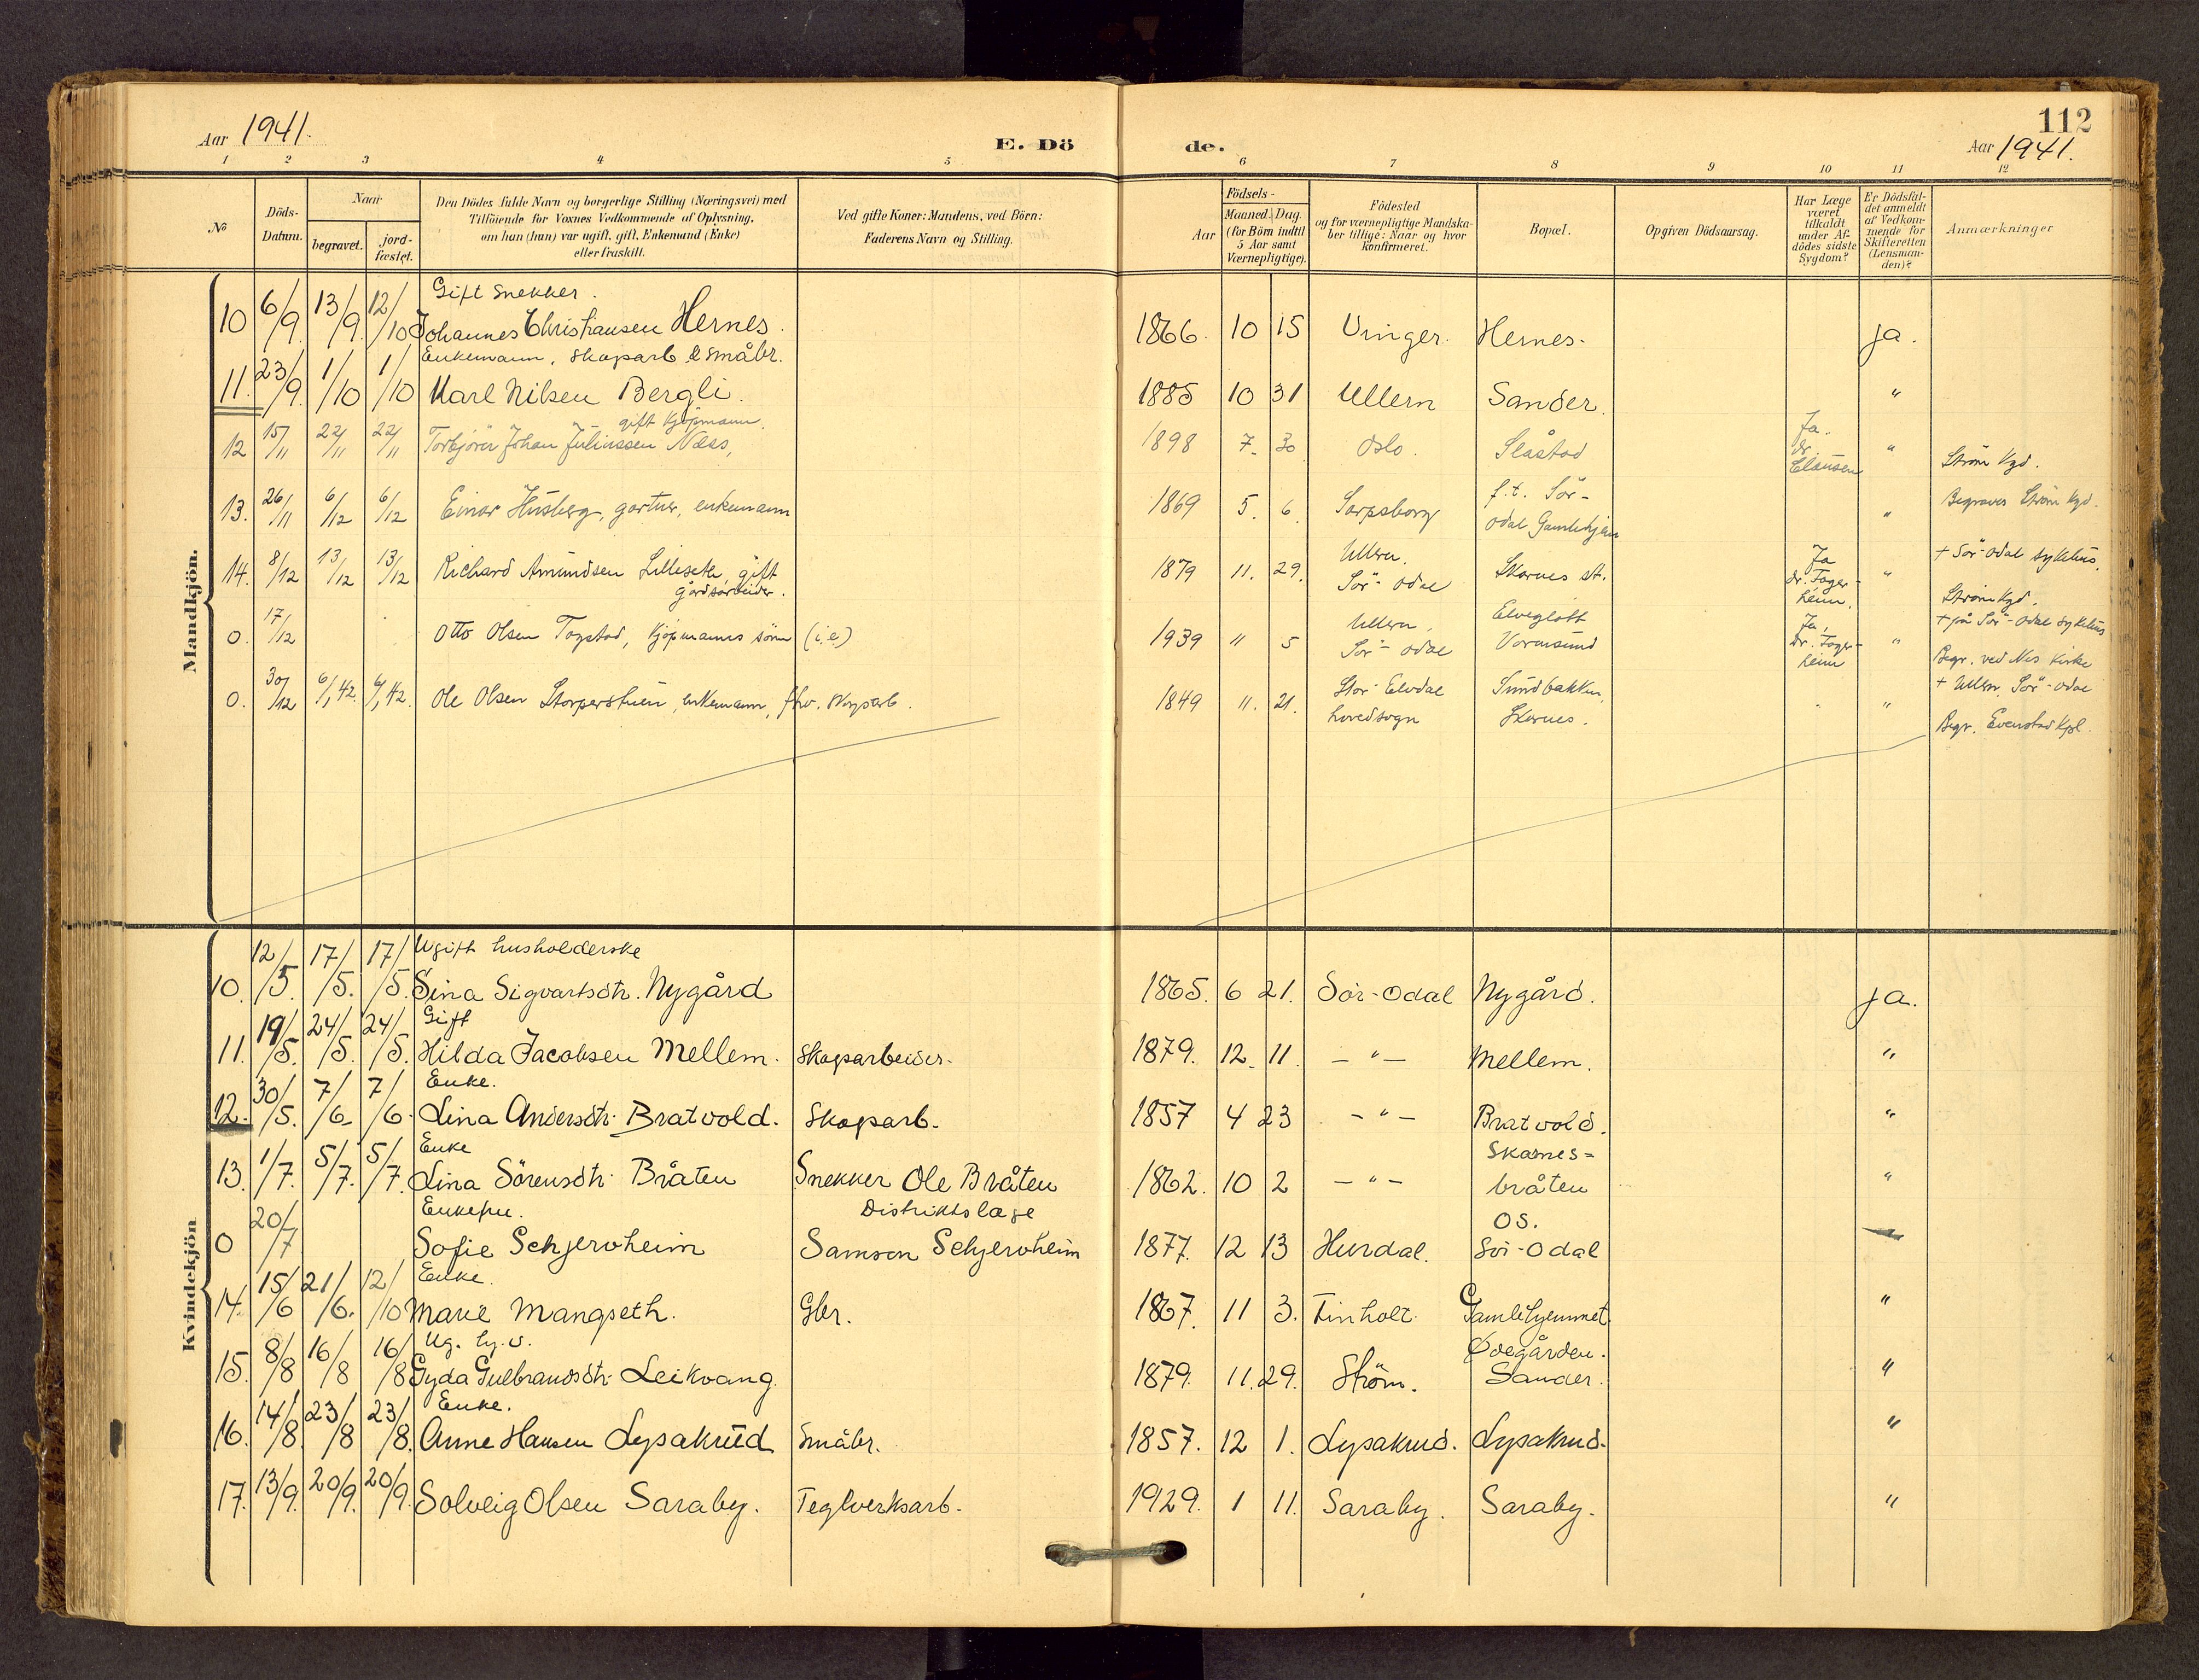 Aar 1941.
E. Dö
de.
112
Aar 1941.
1 2 3 4 5 6 7 8 9 10 11 12
No
Döds-
Datum.
Naar
begravet.
jord-
fæstet.
Den Dödes fulde Navn og borgerlige Stilling (Næringsvei) med
Tilföiende for Voxnes Vedkommende af Oplysning,
om han (hun) var ugift, gift, Enkemand (Enke)
eller fraskilt.
Ved gifte Koner: Mandens, ved Börn:
Faderens Navn og Stilling.
Aar
Födsels-
Maaned. Dag.
(for Börn indtil
5 Aar samt
Værnepligtige).
Födested
og for værnepligtige Mandska-
ber tillige: Naar og hvor
konfirmeret.
Bopæl.
Opgiven Dödsaarsag.
Har Læge
været
tilkaldt
under Af-
dödes sidste
Sygdom?
Er Dödsfal-
det anmeldt
af Vedkom-
mende for
Skifteretten
(Lensman-
den)?
Anmærkninger
Mandkjön.
Gift snekker.
10 6/9. 13/9. 12/10 Johannes Christiansen Hernes. 1866. 10 15 Vinger. Hernes. ja.
Enkemann, skogarb & småbr.
11. 23/9. 1/10 1/10 Karl Nilsen Bergli. 1885 10 31 Ullern Sander. "
gift kjøpmann.
12 15/11 22/11 22/11 Torbjörn Johan Juliussen Næss, 1898 7. 30 Oslo. Slåstad Ja. dr. Clausen " Ström kgd.
13. 26/11 6/12 6/12 Einar Husberg, gartner, enkemann 1869 5. 6. Sarpsborg f.t. Sör-
odal Gamlehjem " Begraves Ström kgd.
14. 8/12 13/12 13/12 Richard Amundsen Lilleseth, gift
gårdsarbeider. 1879 11. 29. Ullern.
Sör-odal Skarnes st. Ja
dr. Fager-
heim. " + Sör-odal sykehus.
Ström kgd.
0. 17/12 Otto Olsen Togstad, kjöpmanns sönn (i.e) 1939 11 5 Ullern,
Sör-odal Elveglott
Vormsund Ja,
dr. Fager-
heim " + på Sör-odal sykehus
Begr. ved Nes kirke
0. 30/12 6/1,42. 6/1,42. Ole Olsen Storperstuen, enkemann, fhv. skogarb. 1849 11. 21. Stor-Elvdal
hovedsogn Sundbakken,
Skarnes. " + Ullern. Sör-odal
Begr. Evenstad kpl.
Kvindekjön
Ugift husholderske
10. 12/5. 17/5. 17/5. Sina Sigvartsdtr. Nygård 1865. 6 21. Sör-Odal Nygård. ja.
Gift
11. 19/5. 24/5. 24/5. Hilda Jacobsen Mellem. Skogsarbeider. 1879. 12. 11. – " – Mellem. "
Enke.
12. 30/5. 7/6. 7/6. Lina Andersdtr. Bratvold. Skogarb. 1857 4 23 – " – Bratvold. "
Enke
13. 1/7. 5/7. 5/7. Lina Sörensdtr. Bråten Snekker Ole Bråten 1862. 10 2 – " – Skarnes=
bråten "
Enkefru. Distriktslæge
0 20/7 Sofie Schjervheim Samson Schjervheim 1877. 12 13 Hurdal. Os.
Sör-Odal
Enke.
14. 15/6 21/6. 12/10 Marie Mangseth. Gbr. 1867. 11 3. Finholt. Gamlehjemmet. "
Ug. hj.v.
15. 8/8 16/8 16/8 Gyda Gulbrandsdtr. Leikvang. 1879. 11. 29. Ström. Ødegården.
Sander. "
Enke.
16. 14/8. 23/8 23/8. Anne Hansen Lysakrud Småbr. 1857. 12 1. Lysakrud. Lysakrud. "
17. 13/9. 20/9. 20/9. Solveig Olsen Saraby. Teglverksarb. 1929. 1 11. Saraby. Saraby. "